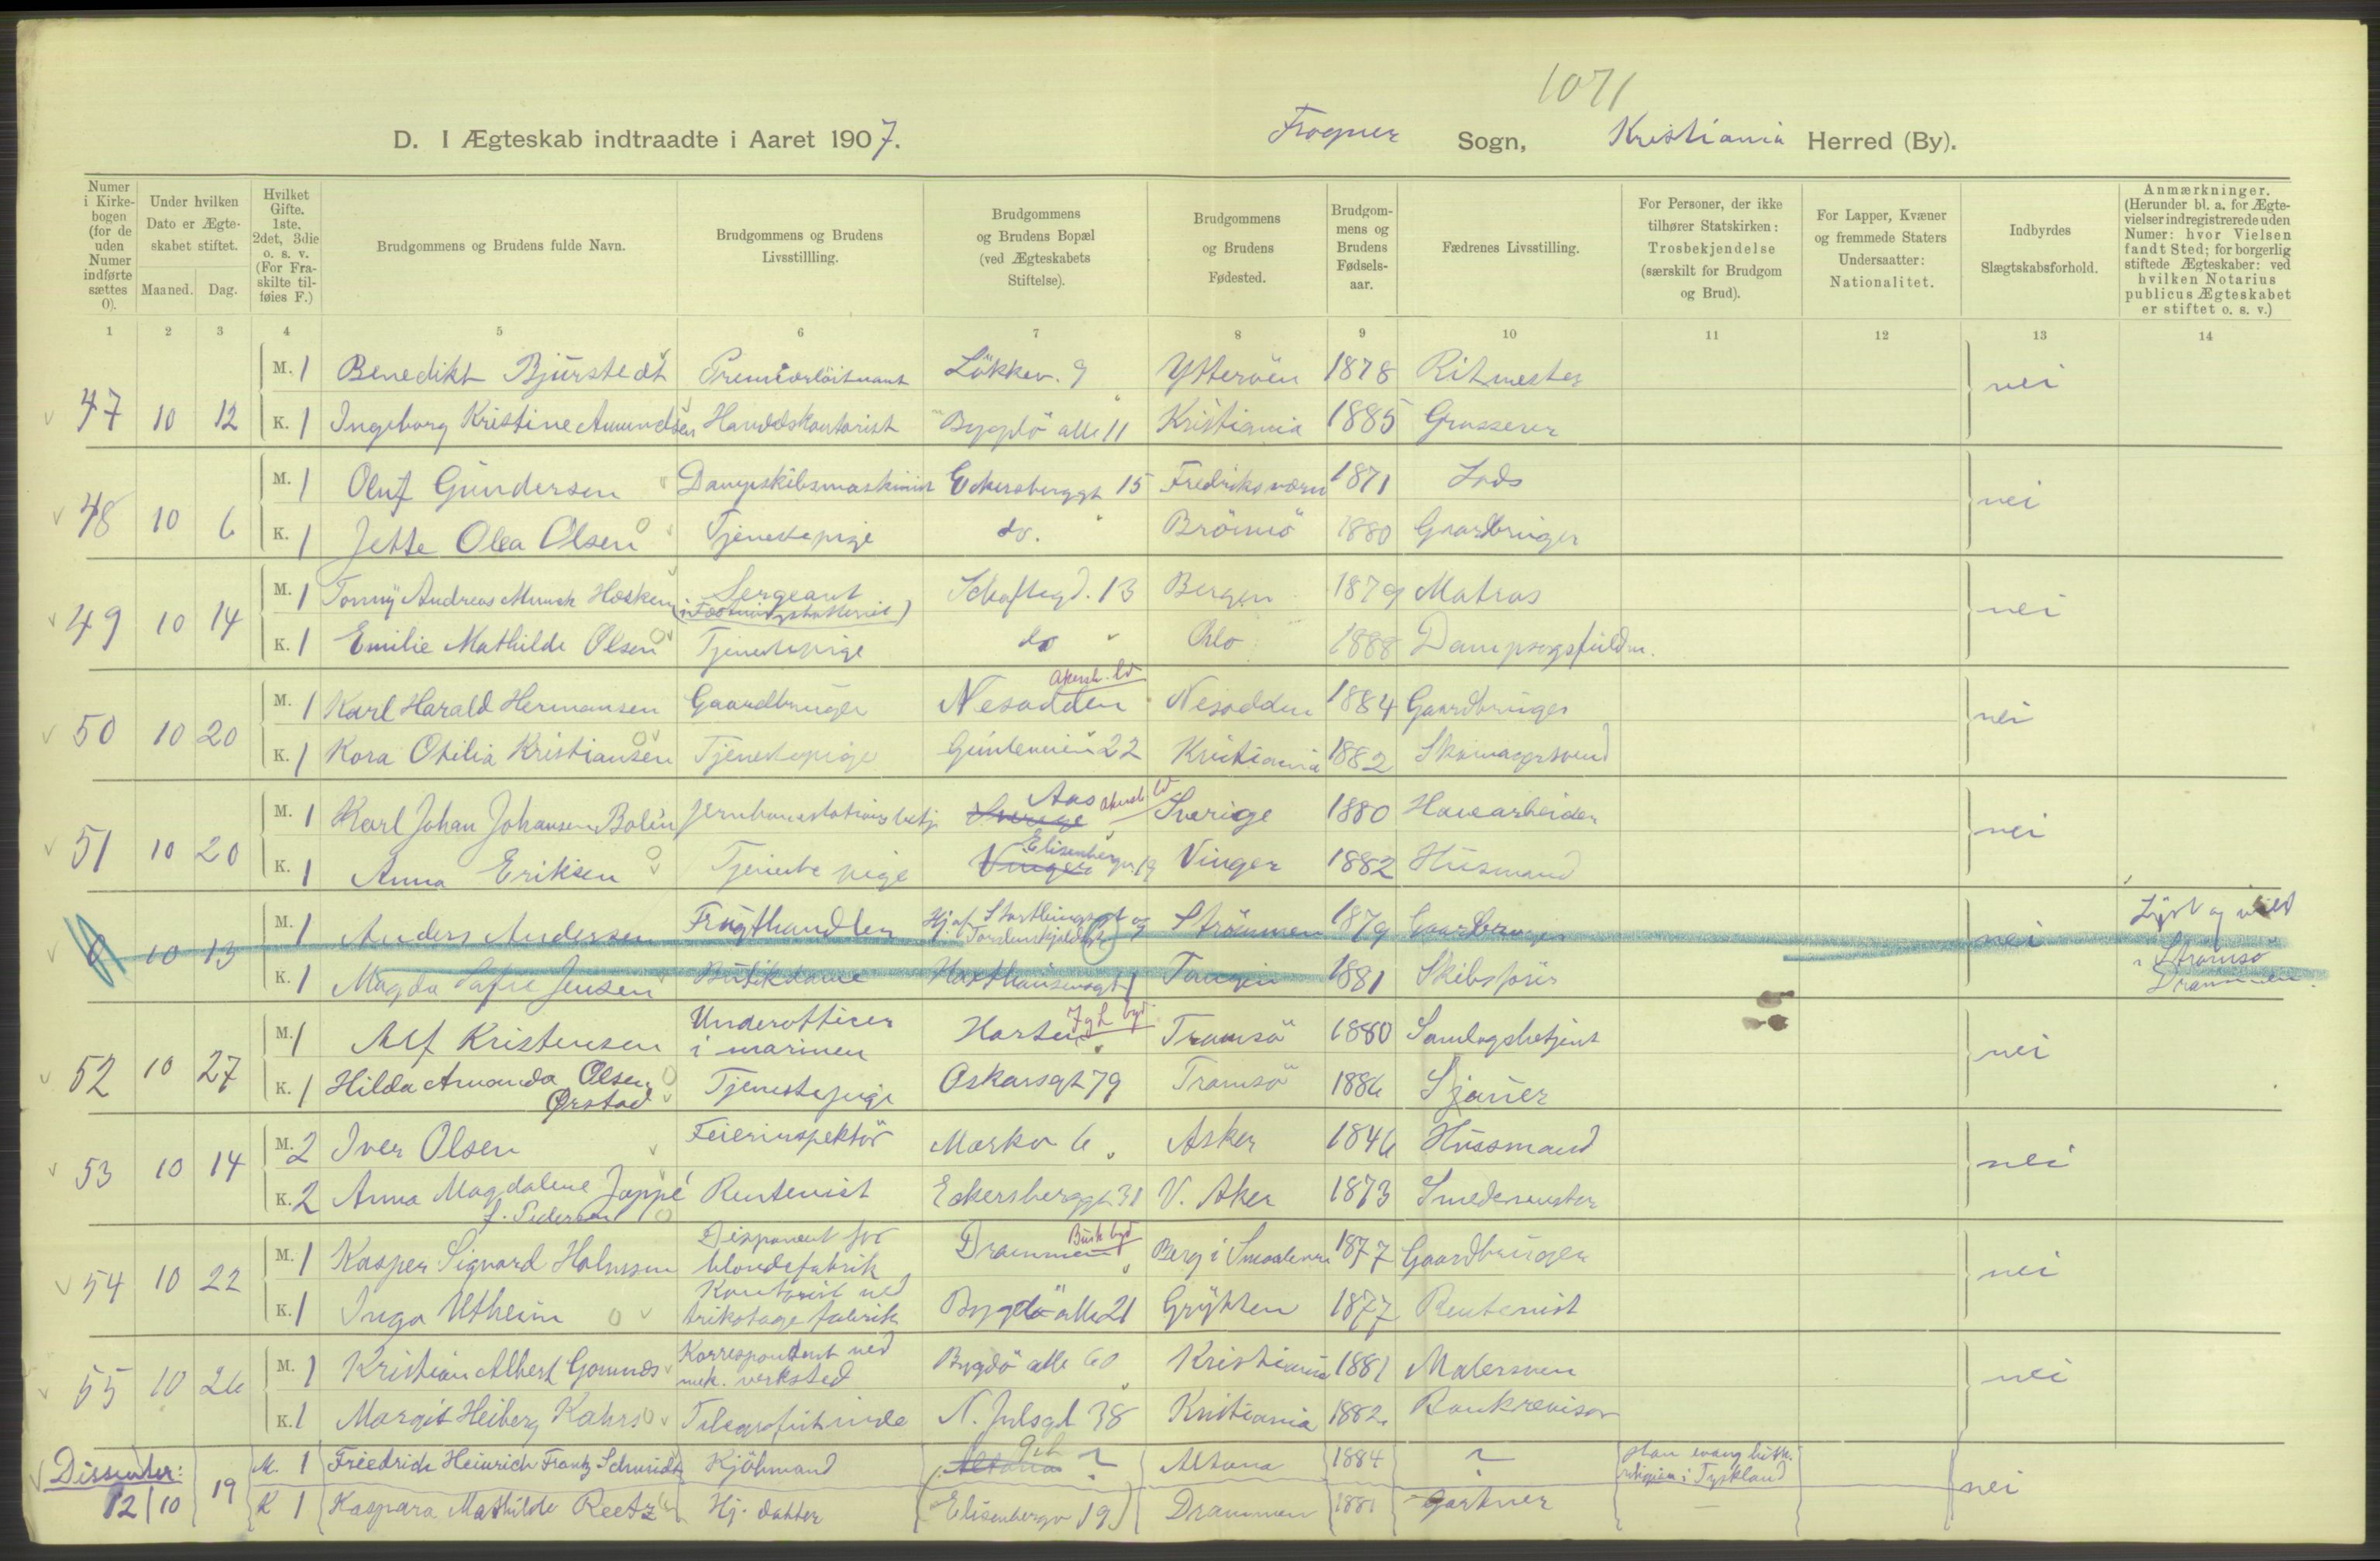 1071
D. I Ægteskab indtraadte i Aaret 1907.
Frogner Sogn, Kristiania Herred (By).
Numer i Kirkebogen (for de uden Numer indførte sættes 0).
Under hvilken Dato er Ægteskabet stiftet.
Maaned. Dag.
Hvilket Gifte. 1ste, 2det, 3die o. s. v. (For Fraskilte tilføies F.)
Brudgommens og Brudens fulde Navn.
Brudgommens og Brudens Livsstillling.
Brudgommens og Brudens Bopæl (ved Ægteskabets Stiftelse).
Brudgommens og Brudens Fødested.
Brudgommens og Brudens Fødselsaar.
Fædrenes Livsstilling.
For Personer, der ikke tilhører Statskirken: Trosbekjendelse (særskilt for Brudgom og Brud).
For Lapper, Kvæner og fremmede Staters Undersaatter: Nationalitet.
Indbyrdes Slægtskabsforhold.
Anmærkninger. (Herunder bl. a. for Ægtevielser indregistrerede uden Numer: hvor Vielsen fandt Sted; for borgerlig stiftede Ægteskaber: ved hvilken Notarius publicus Ægteskabet er stiftet o. s. v.)
1 2 3 4 5 6 7 8 9 10 11 12 13 14
M. 1 Benedikt Bjürstedt Premierlöitnant Lökkev. 9 Ytteröen 1878 Ritmester
47 10 12 nei
K. 1 Ingeborg Kristine Amundsen Handelskontorist Bygdö alle 11 Kristiania 1885 Grosserer
M. 1 Oluf Gündersen Dampskibsmaskinist Eckersberggt 15 Fredriksværn 1871 Lods
48 10 6 nei
K. 1 Jette Olea Olsen Tjenestepige do. Brönnö 1880 Gaardbruger
M. 1 Tonny Andreas Munch Hosken Sergeant Schaftegd. 13 Bergen 1879 Matros
49 10 14 nei
K. 1 Emilie Mathilde Olsen Tjenestepige do Oslo 1888 Dampsagsfuldm.
Akersh. ld
M. 1 Karl Harald Hermansen Gaardbruger Nesodden Nesodden 1884 Gaardbruger
50 10 20 nei
K. 1 Kora Otilia Kristiansen Tjenestepige 22 Kristiania 1882 Skomagersvend
Aas Akersh ld
M. 1 Karl Johan Johansen Bolin Jernbanestationsbetj. Sverige Sverige 1880 Havearbeider
51 10 20 nei
Elisenbergv. 19
K. 1 Anna Eriksen Tjeneste pige Vinger Vinger 1882 Husmand
M. 1 Anders Andersen Frugthandler Hj. af Storthingsgt og Tordenskjoldsgt Strömmen 1879 Gaardbruger
0 10 13 nei Lyst og viet i Strömsö Drammen.
K. 1 Magda Sofie Jensen Butikdame Haxthausensgt 1 1881 Skibsfører
M. 1 Alf Kristensen Underofficer i marinen Horten Jgl byd Tromsö 1880 Samlagsbetjent
52 10 27 nei
K. 1 Hilda Amanda Olsen Ørstad Tjenestepige Oskarsgt 79 Tromsö 1886 Sjauer
M. 2 Iver Olsen Feierinspektör Markv 6 Asker 1846 Hüsmand
53 10 14 nei
K. 2 Anna Magdalene Jappé f. Pedersen Rentenist Eckersberggt 31 V. Aker 1873 Smedemester
M. 1 Kasper Sigvard Halvssen Disponent for blondefabrik Drammen Busk byd Berg i Smaalenene 1877 Gaardbruger
54 10 22 nei
K. 1 Inga Utheim Kontorist ved trikotage fabrik Bygdö alle 21 Grytten 1877 Rentenist
M. 1 Kristian Albert Gomnæs Korrespondent ved mek. verksted Bygdö alle 60 Kristiania 1881 Malersven
55 10 26 nei
K. 1 Margit Heiberg Kahrs Telegrafistinde N. Julsgt 38 Kristiania 1882 Bankrevisor
Dissenter:
M. 1 Friedrich Heinrich Frantz Schmidt Kjöbmand Altona ? Altona 1884 ? evang luth. religion i Tyskland
12/10 19 nei
K 1 Kaspara Mathilde Reetz Hj. datter Elisenbergv 19 Drammen 1881 Gartner